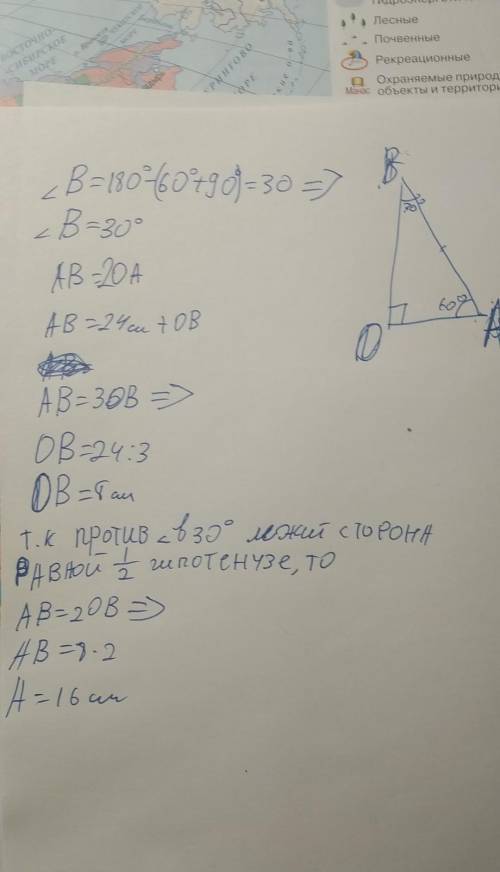 Лесные
Почвенные
Рекреационные
Охраняемые природ
объекты и территори
ВОСТОЧНО
СИБИРСКОЕ
МОРЕ
МОРЕ
∠B=180°-(60°+90°)=30 =>
∠B=30°
AB=2OA
AB=24см+OB
AB=3OB =>
OB=24:3
OB=8см
т.к против ∠в30° лежит сторона
равной 1/2 гипотенузе, то
AB=2OB =>
AB=8·2
A=16см
B
30°
60°
O
A